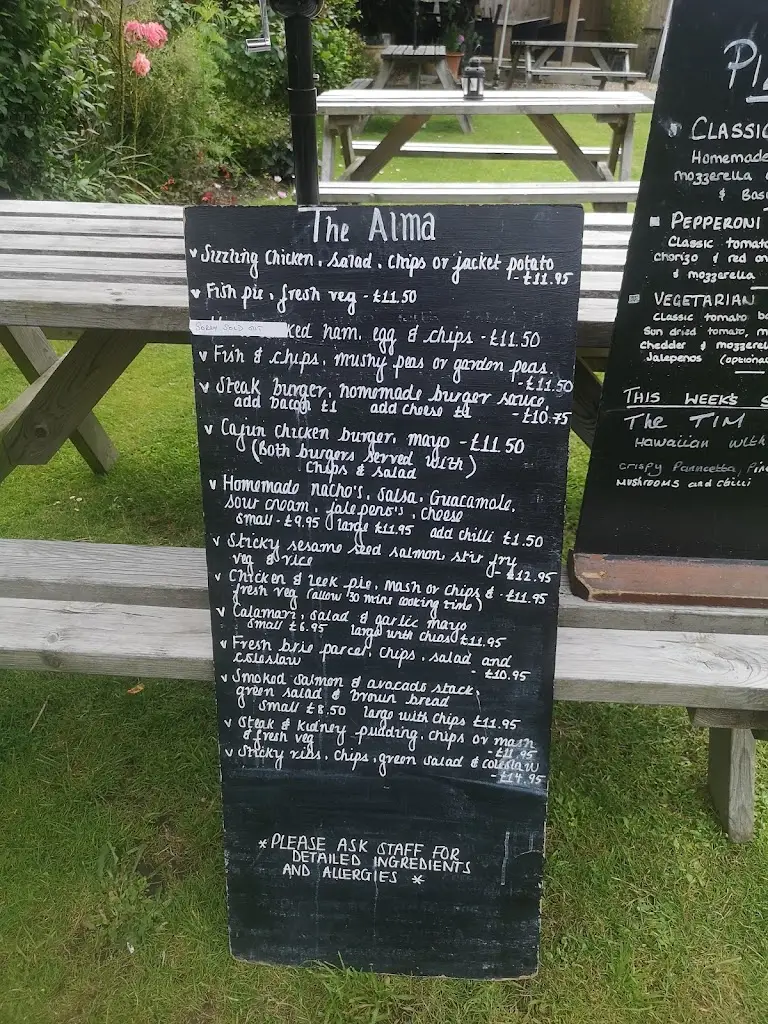 The Alma
Sizzling Chicken, salad, chips or jacket potato
- £11.95
Fish pie, fresh veg - £11.50
SORRY SOLD OUT
ked ham, egg & chips - £11.50
Fish & chips, mushy peas or garden peas.
- £11.50
Steak burger, homemade burger sauce
add bacon £1 add cheese £1 - £10.75
Cajun Chicken burger, mayo - £11.50
(Both burgers served with)
chips & salad
Homemade nacho's, salsa, Guacamole,
sour cream, jalepeno's, cheese
small - £9.95 large £11.95 add chilli £1.50
Sticky sesame seed salmon stir fry
veg & rice - £12.95
Chicken & leek pie, mash or chips & - £11.95
fresh veg (allow 30 mins cooking time)
Calamari, salad & garlic mayo
small £6.95 large with chips £11.95
Fresh brie parcel, chips, salad and
coleslaw - £10.95
Smoked salmon & avocado stack,
green salad & brown bread
small £8.50 large with chips £11.95
Steak & kidney pudding, chips or mash
& fresh veg - £11.95
Sticky ribs, chips, green salad & coleslaw
- £14.95
*PLEASE ASK STAFF FOR
DETAILED INGREDIENTS
AND ALLERGIES *
CLASSIC
Homemade
mozzerella
& Bas
PEPPERONI
Classic tomat
chorizo & red on
& mozzerella
VEGETARIAN
Classic tomato ba
Sun dried tomato, m
Chedder & mozzere
Jalepenos (optiona
THIS WEEK'S S
The TIM
Hawaiian with
crispy Panncetta, Pin
mushrooms and chilli